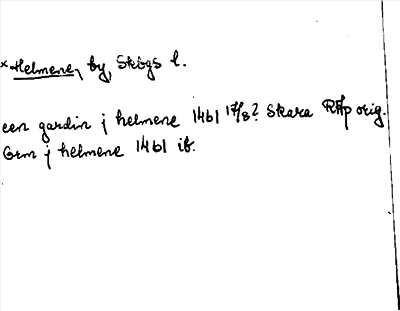 * Helmene, by, Skogs l.
een gardin j helmene 1461 17/8? Skara RAp orig.
Grm j helmene 1461 ib.